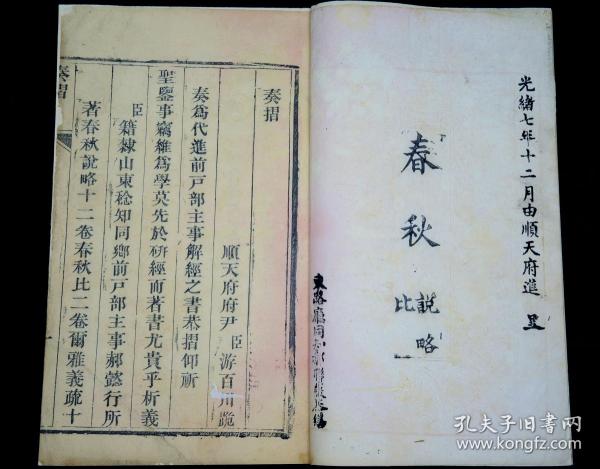 光緒七年十二月由順天府進呈
春秋
說略
比
奏摺
順天府府尹臣游百川跪
奏爲代進前戶部主事解經之書恭摺仰祈
聖鑒事竊維爲學莫先於研經而著書尤貴乎析義
臣籍隸山東稔知同鄉前戶部主事郝懿行所
著春秋說略十二卷春秋比二卷爾雅義疏十
奏摺
孔夫子旧书网
www.kongfz.com